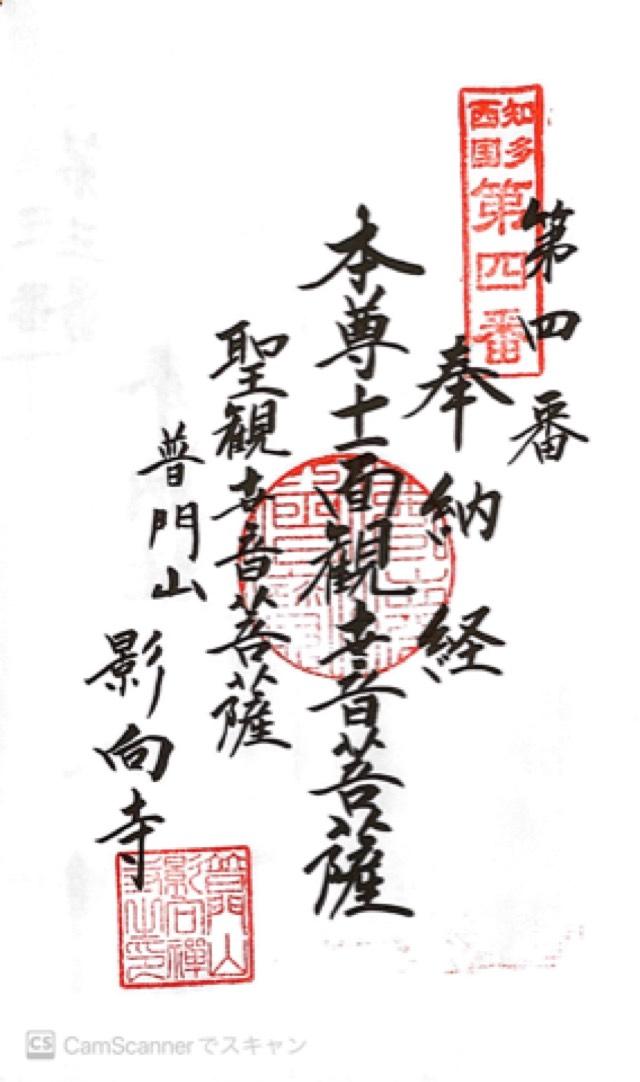 知多
西国
第四番
第四番
奉納経
本尊十一面観世音菩薩
聖観世音菩薩
普門山
影向寺
普門山
影向禅
寺之印
CS CamScannerでスキャン